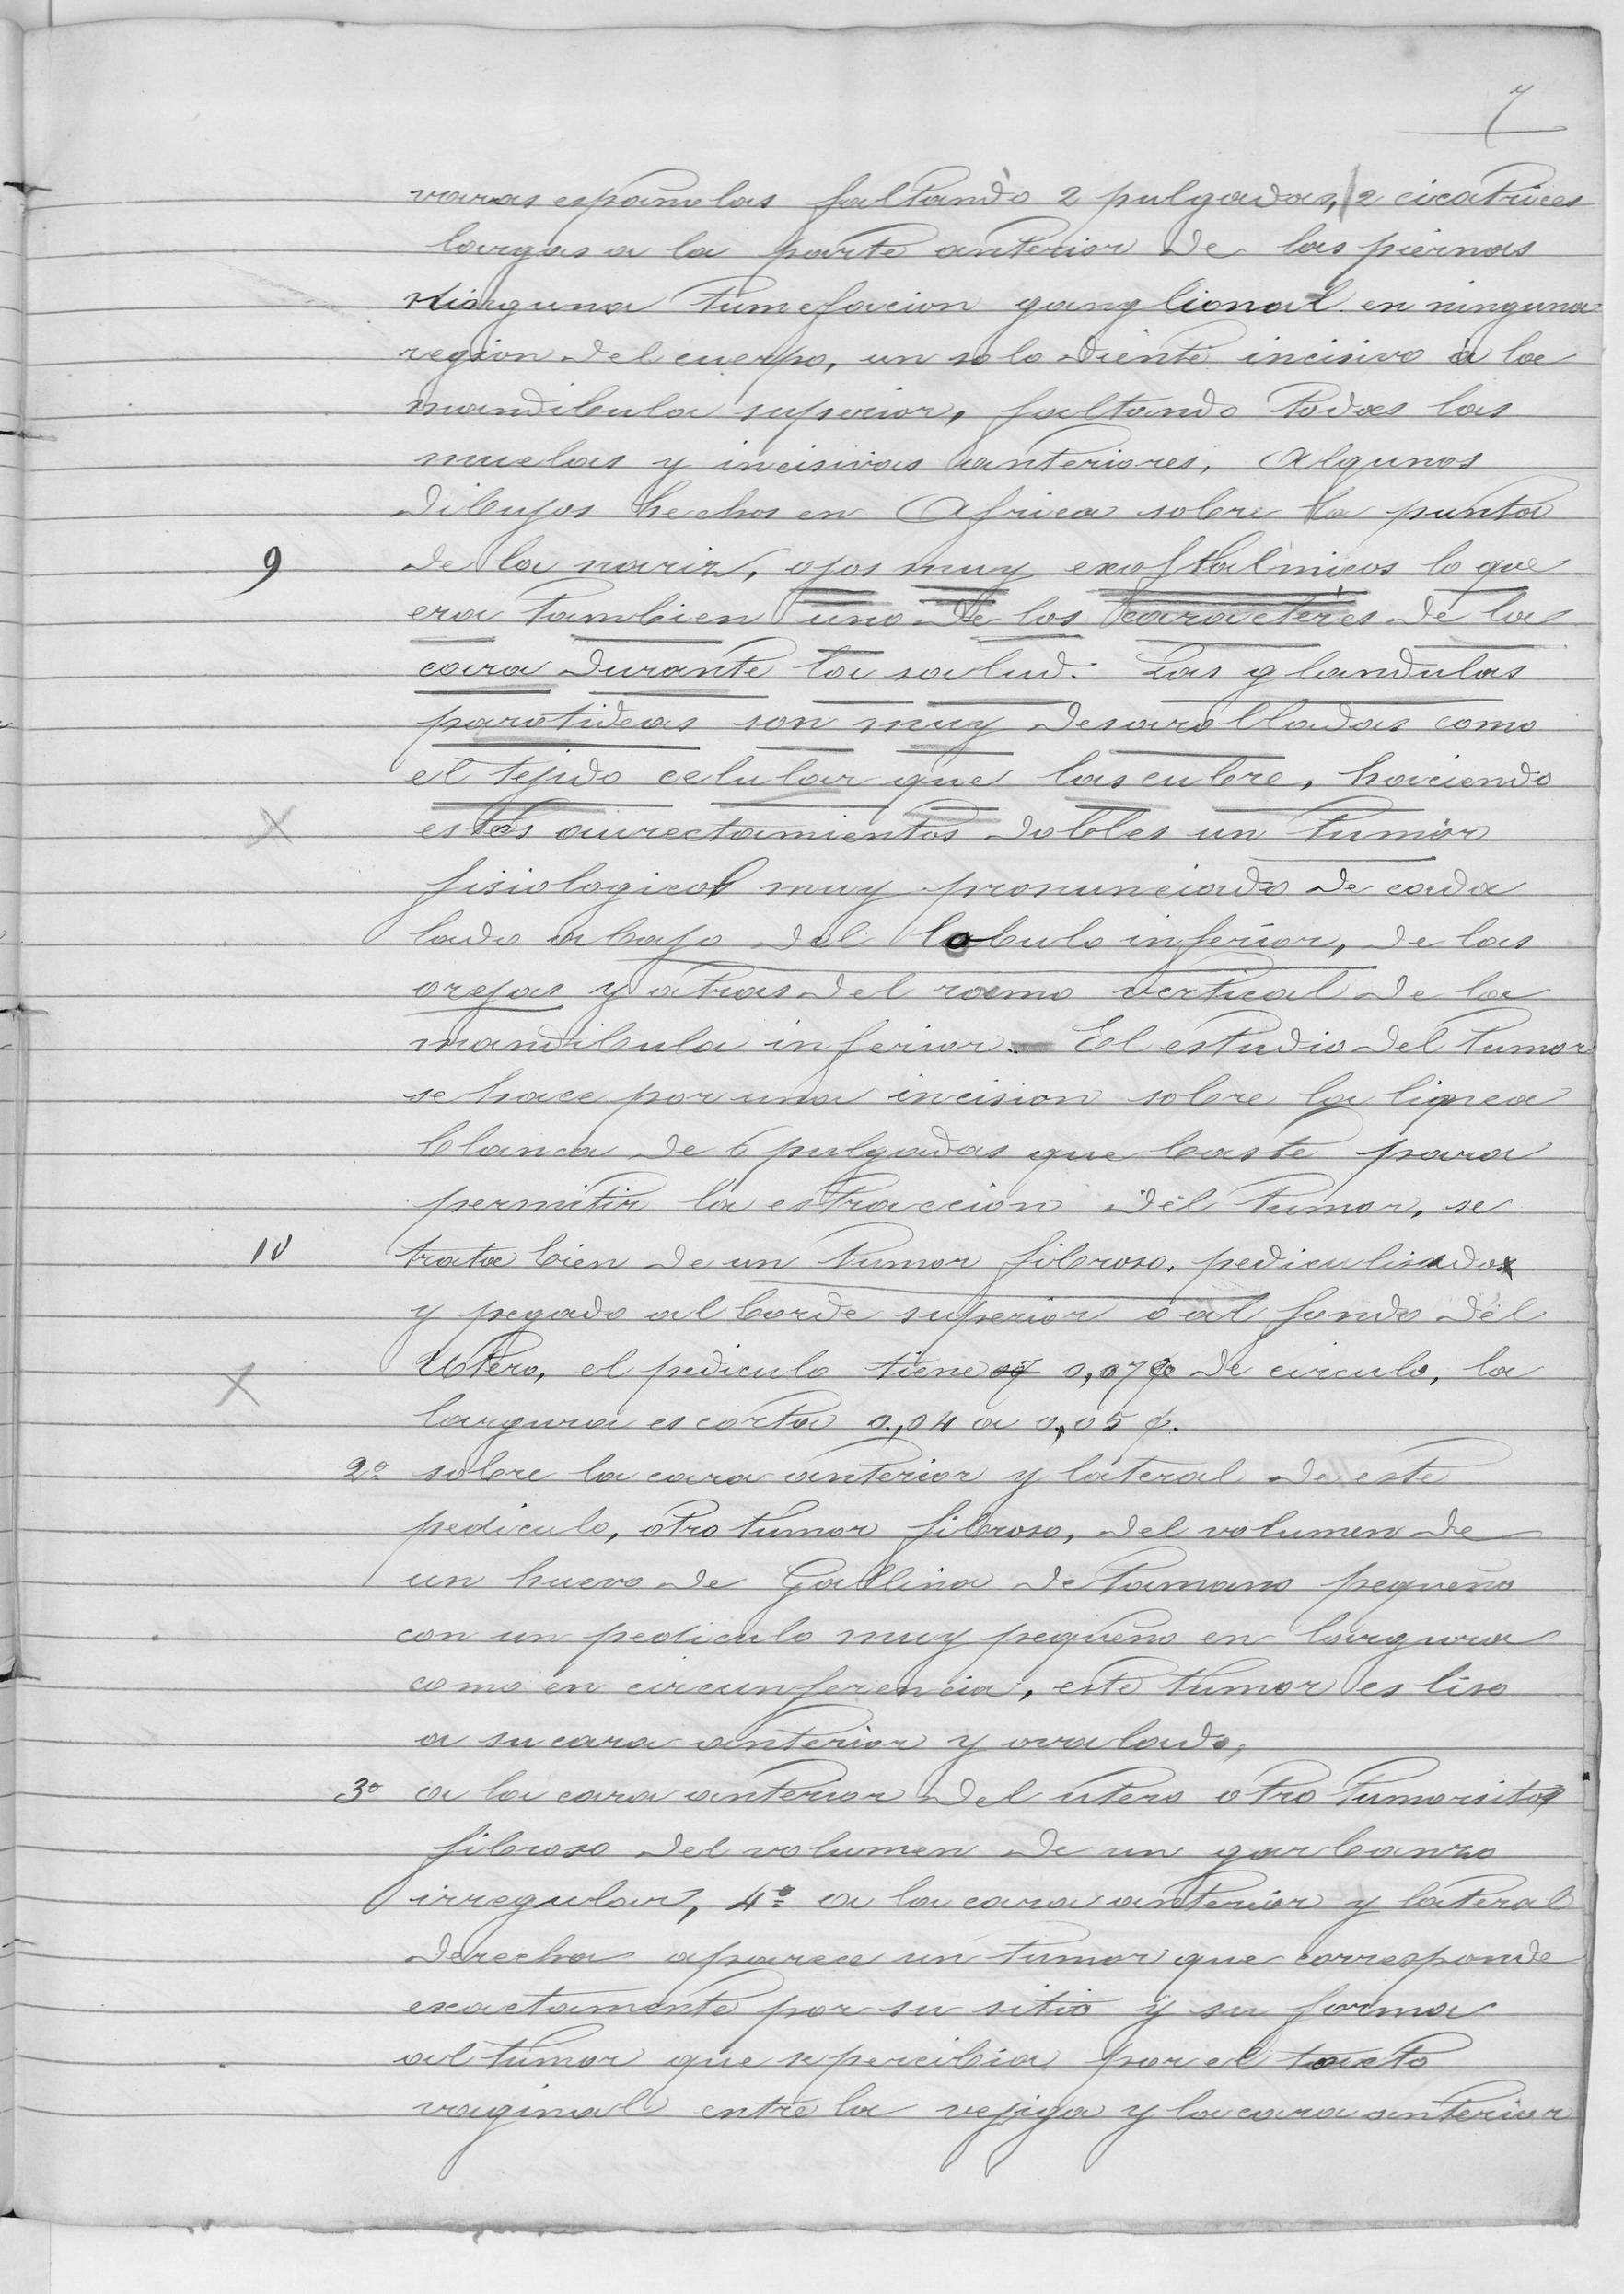 7
varas españolas faltando 2 pulgadas, 2 cicatrices
largas a la parte anterior de las piernas
Niguna tumefacion ganglional en ninguna
region del cuerpo, un solo diente incisivo a la
mandibula superior, faltando todas las
muelas y incisivas anteriores, Algunos
dibujos hechos en Africa sobre la punta
9 de la nariz, ojos muy exoftalmicos lo que
era tambien uno de los caractéres de la
cara durante la salud. Las glandulas
parotideas son muy desarolladas como
el tejido celular que las cubre, haciendo
X estos aurectamientos dobles un tumor
fisiologico muy pronunciado de cada
lado abajo del lobulo inferior, de las
orejas y atras del ramo vertical de la
mandibula inferior. El estudio del tumor
se hace por una incision sobre la lignea
blanca de 6 pulgadas que baste para
permitir la estraccion del tumor, se
10 trata bien de un tumor fibroso, pediculisado
y pegado al borde superior o al fondo del
X Utero, el pediculo tiene 0,07 de circulo, la
largura es corta 0,04 a 0,05
2º sobre la cara anterior y lateral de este
pediculo, otro tumor fibroso, del volumen de
un huevo de Gallina de tamano pequeño
con un pediculo muy pequeño en largura
como en circunferencia, este tumor es liso
a su cara anterior y ovalado;
3º a la cara anterior del utero otro tumorsito
fibroso del volumen de un garbanzo
irregular, 4º a la cara anterior y lateral
derecha aparece un tumor que corresponde
exactamente por su sitio y su forma
al tumor que se percibia por el tacto
vaginal entre la vejiga y la cara anterior